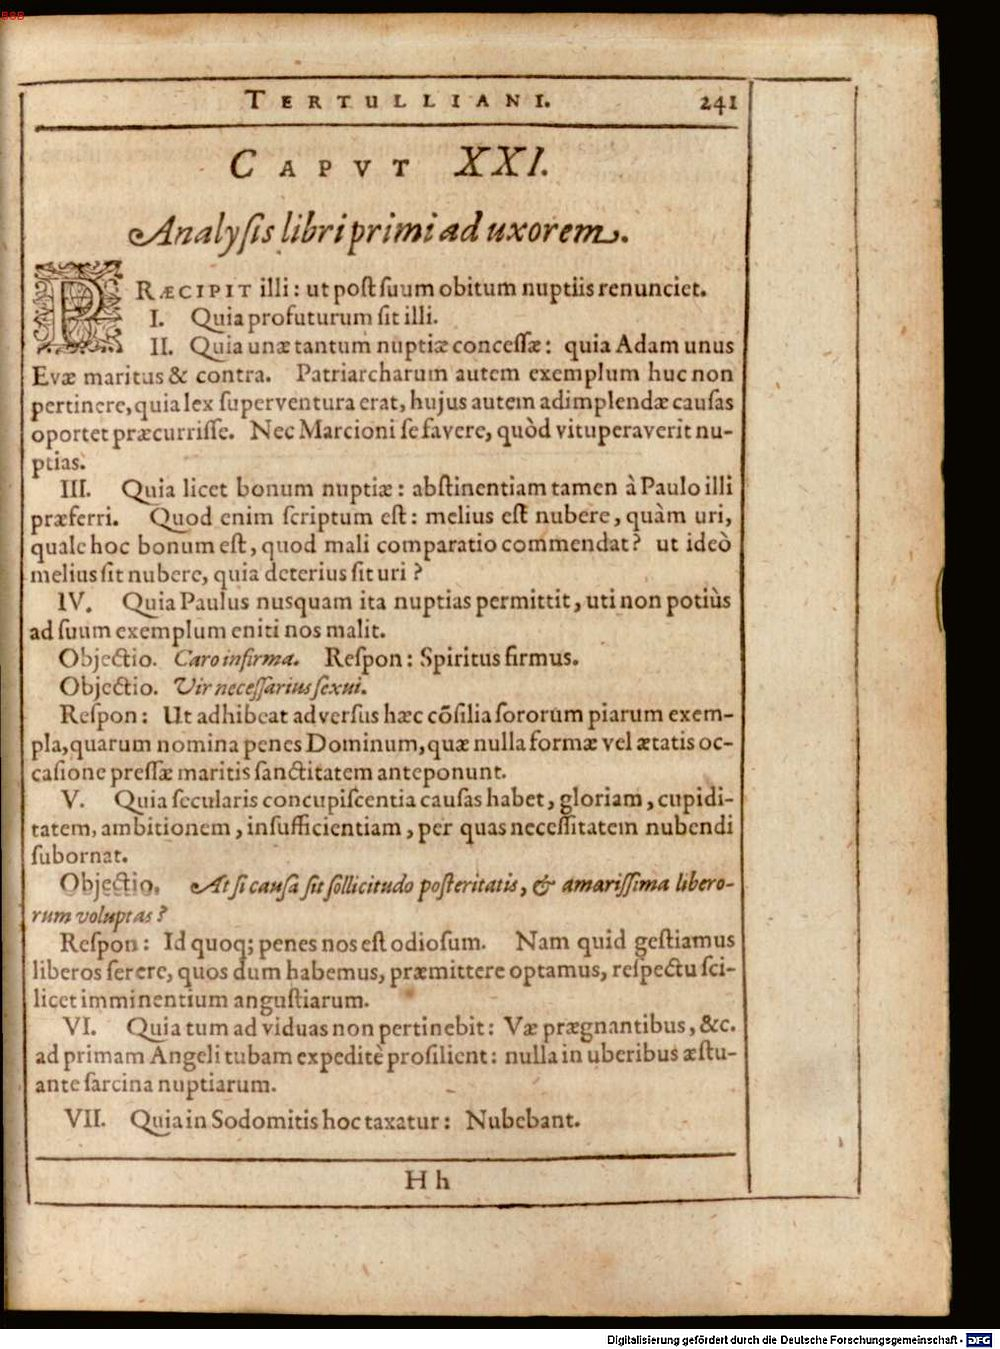 BSB
TERTULLIANI. 241
CAPVT XXI.
Analysis libri primi ad uxorem.
PRÆCIPIT illi: ut post suum obitum nuptiis renunciet.
I. Quia profuturum sit illi.
II. Quia unæ tantum nuptiæ concessæ: quia Adam unus
Evæ maritus & contra. Patriarcharum autem exemplum huc non
pertinere, quia lex superventura erat, hujus autem adimplendæ causas
oportet præcurrisse. Nec Marcioni se favere, quòd vituperaverit nu-
ptias.
III. Quia licet bonum nuptiæ: abstinentiam tamen à Paulo illi
præferri. Quod enim scriptum est: melius est nubere, quàm uri,
quale hoc bonum est, quod mali comparatio commendat? ut ideò
melius sit nubere, quia deterius sit uri?
IV. Quia Paulus nusquam ita nuptias permittit, uti non potiùs
ad suum exemplum eniti nos malit.
Objectio. Caro infirma. Respon: Spiritus firmus.
Objectio. Vir necessarius sexui.
Respon: Ut adhibeat adversus hæc cõsilia sororum piarum exem-
pla, quarum nomina penes Dominum, quæ nulla formæ vel ætatis oc-
casione pressæ maritis sanctitatem anteponunt.
V. Quia secularis concupiscentia causas habet, gloriam, cupidi-
tatem, ambitionem, insufficientiam, per quas necessitatem nubendi
subornat.
Objectio. At si causa sit sollicitudo posteritatis, & amarissima libero-
rum voluptas?
Respon: Id quoq; penes nos est odiosum. Nam quid gestiamus
liberos serere, quos dum habemus, præmittere optamus, respectu sci-
licet imminentium angustiarum.
VI. Quia tum ad viduas non pertinebit: Væ prægnantibus, &c.
ad primam Angeli tubam expeditè prosilient: nulla in uberibus æstu-
ante sarcina nuptiarum.
VII. Quia in Sodomitis hoc taxatur: Nubebant.
Hh
Digitalisierung gefördert durch die Deutsche Forschungsgemeinschaft - DFG